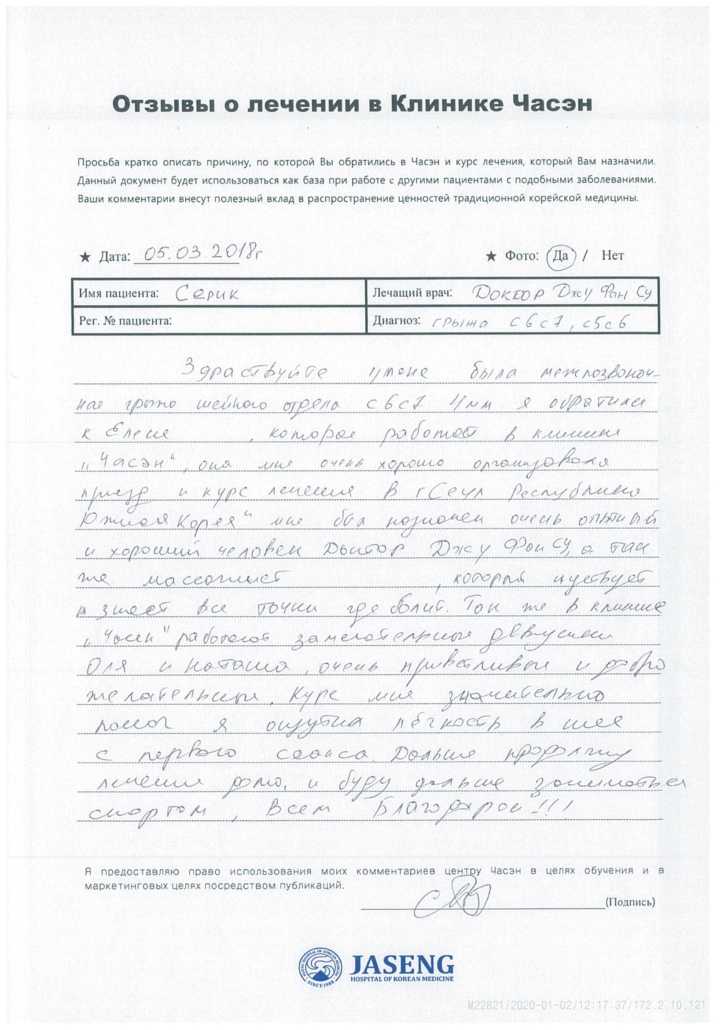 Отзывы о лечении в Клинике Часэн
Просьба кратко описать причину, по которой Вы обратились в Часэн и курс лечения, который Вам назначили.
Данный документ будет использоваться как база при работе с другими пациентами с подобными заболеваниями.
Ваши комментарии внесут полезный вклад в распространение ценностей традиционной корейской медицины.
★ Дата: 05.03.2018г ★ Фото: Да / Нет
Имя пациента: Серик Лечащий врач: Доктор Джу Фан Су
Рег. № пациента: Диагноз: грыжа с6с7, с5с6
Здраствуйте у меня была межпозвоноч-
ная грыжа шейного отдела с6с7 4мм я обратился
к Елене , которая работает в клинике
"Часэн", она мне очень хорошо организовала
приезд и курс лечения в г Сеул Республика
Южная Корея" мне был назначен очень опытный
и хороший человек Доктор Джу Фан Су, а так
же массажист , который чуствует
и знает все точки где болит. Так же в клинике
"Часен" работают замечательные девушки
Оля и Наташа, очень приветливые и добро
желательные. Курс мне значительно
помог я ощутил лёгкость в шее
с первого сеанса. Дальше продолжу
лечение дома, и буду дальше заниматься
спортом, Всем Благодарен!!!
Я предоставляю право использования моих комментариев центру Часэн в целях обучения и в
маркетинговых целях посредством публикаций.
(Подпись)
JASENG
HOSPITAL OF KOREAN MEDICINE
M22821/2020-01-02/12:17:37/172.2.10.121